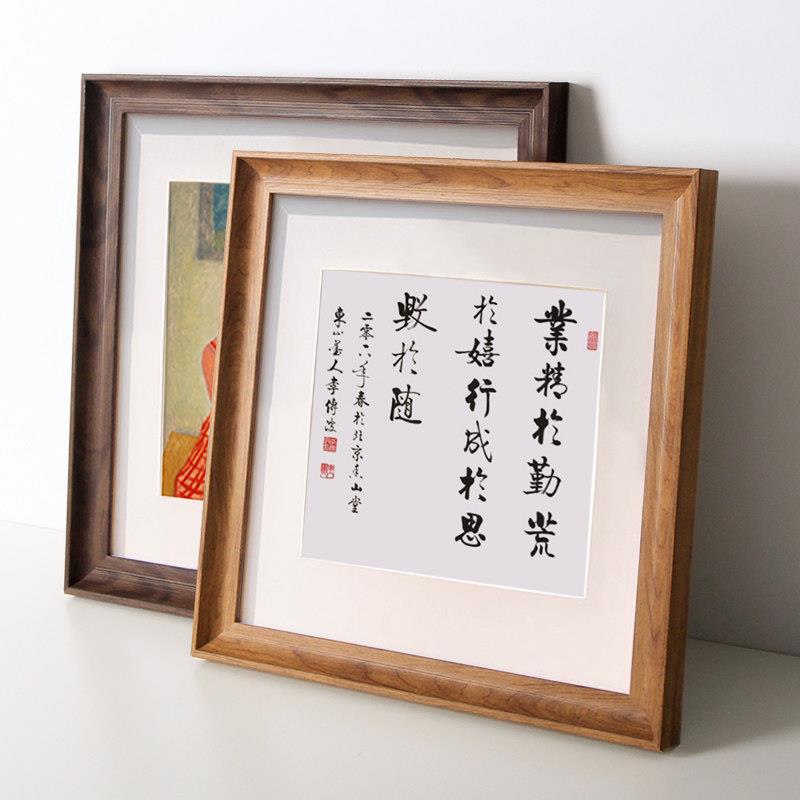 業精於勤荒
於嬉行成於思
毀於随
二零一六年春於北京香山堂
東山墨人李傳波